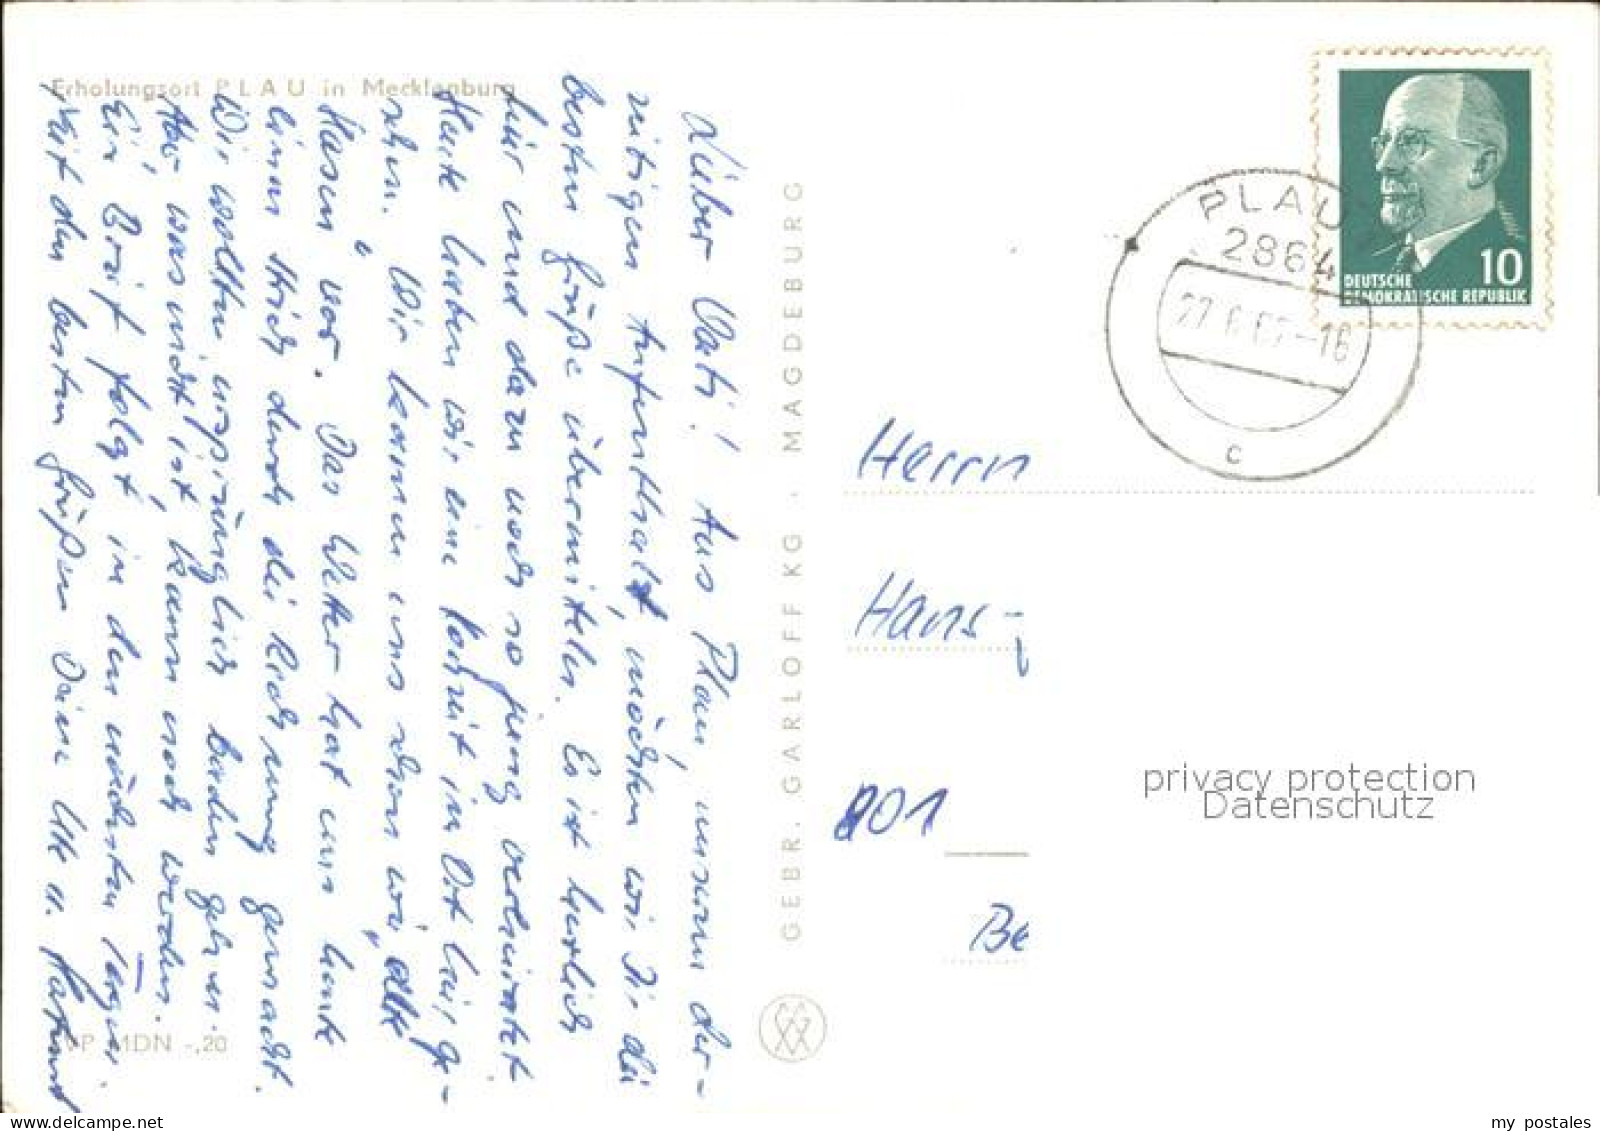 Erholungsort PLAU in Mecklenburg
Lieber Vati! Aus Plau, unserem der-
zeitigen Aufenthalt, möchten wir Dir die
besten Grüße übermitteln. Es ist herrlich
hier und dazu noch so jung verheiratet.
Heute haben wir eine Hochzeit im Ort hier ge-
sehen. Wir kamen uns schon wie "alte
Hasen" vor. Das Wetter hat uns heute
einen Strich durch die Rechnung gemacht.
Wir wollten ursprünglich baden gehen.
Aber was nicht ist, kann noch werden.
Ein Brief folgt in den nächsten Tagen.
Mit den besten Grüßen Deine Ute u. Hartmut
EVP MDN -,20
GEBR. GARLOFF KG · MAGDEBURG
PLAU
2864
27.6.67-16
c
10
DEUTSCHE
DEMOKRATISCHE REPUBLIK
Herrn
Hans-
801
Be
privacy protection
Datenschutz
my postales
www.delcampe.net